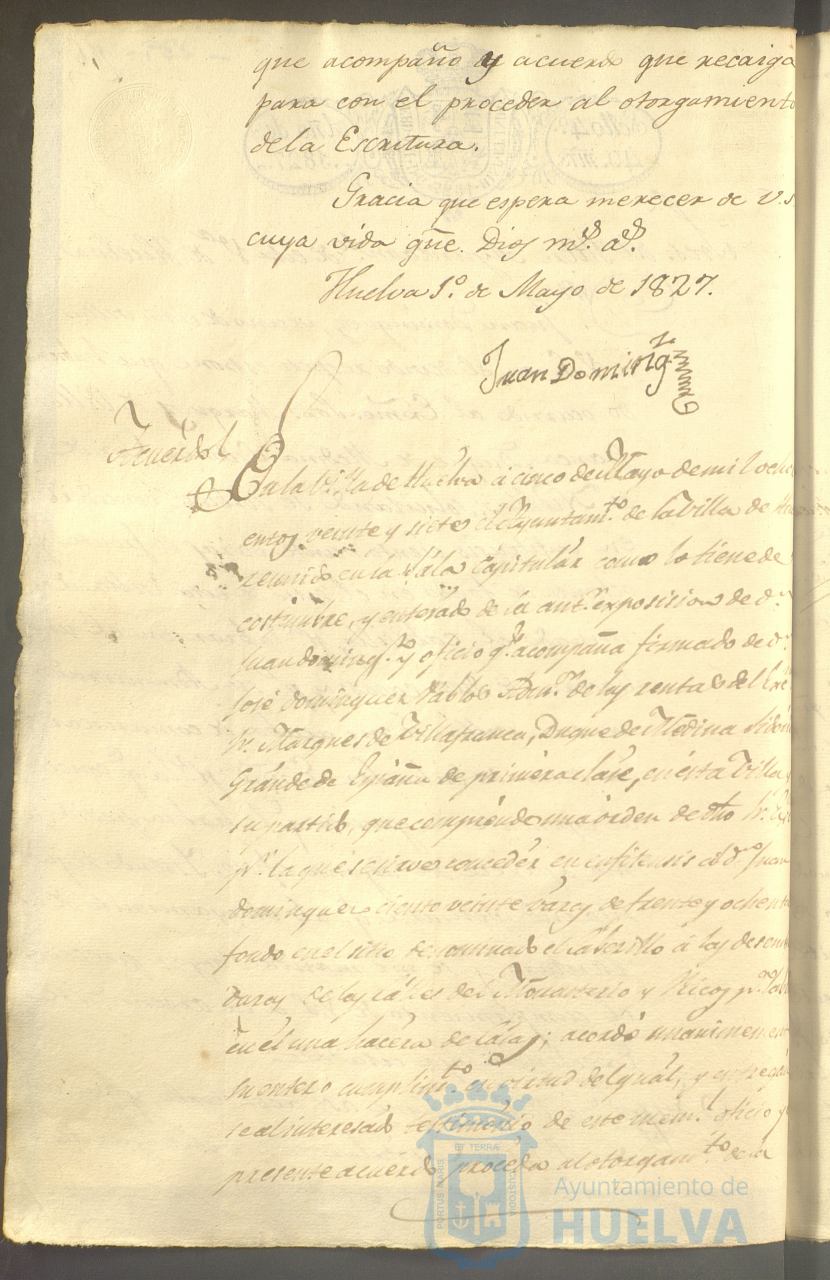 que acompaño y acuerdo que recaiga
para con el proceder al otorgamiento
de la Escritura.
Gracia que espera merecer de V.S
cuya vida gũe. Dios m.s a.s
Huelva 1.º de Mayo de 1827.
Juan Doming.z
Acuerdo
En la Villa de Huelva á cinco de Mayo de mil ochoci
entos veinte y siete el Ayuntam.to de la Villa de
reunido en la Sala Capitular como lo tiene de
costumbre, y enterado de la ant.r exposicion de d.n
Juan doming.z y oficio q.e acompaña firmado de d.n
José dominguez Pablos Adm.r de las rentas del
Sr. Marques de Villafranca, Duque de Medina Sidonia
Grande de España de primera clase, en ésta Villa y
su partido, que comprende una órden de dho Sr.
p.r la que se sirve conceder en enfiteusis á d.n Juan
dominguez ciento veinte varas de frente y ochenta
fondo en el sitio denominado el á los de
de las calles del Monasterio y Ricos p.a
en él una hacera de casas; acordó unanimement
su entero cumplim.to en virtud del qual, y entregan
se al interesado testimonio de este mem.l oficio y
presente acuerdo proceda al otorgam.to de la
PORTUS MARIS
ET TERRÆ
CUSTODIA
Ayuntamiento de
HUELVA